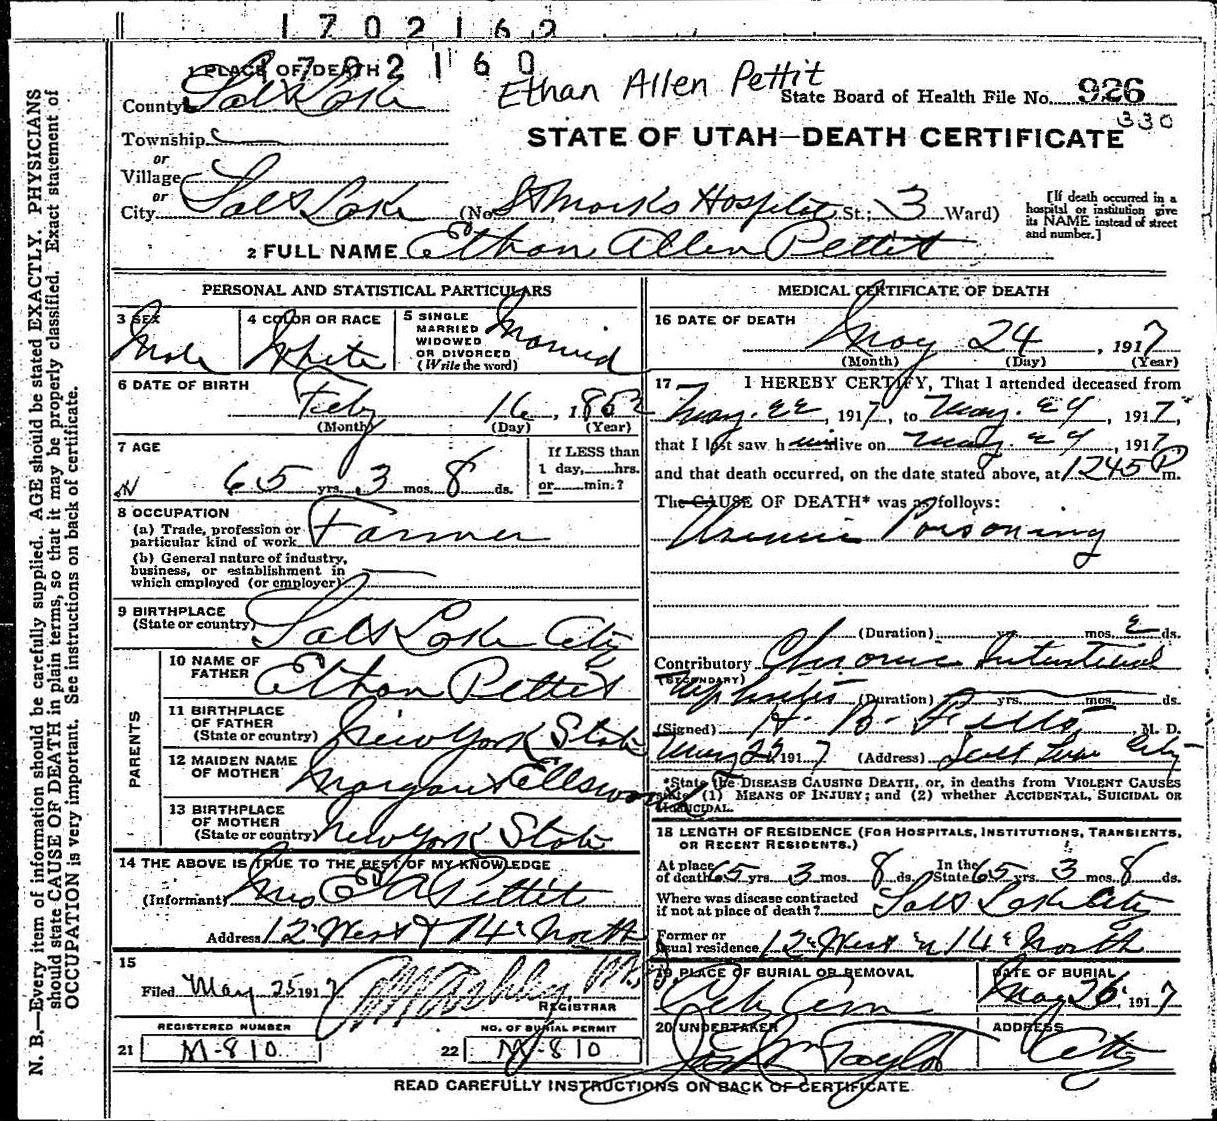 1702162
1702160
1 PLACE OF DEATH
Ethan Allen Pettit
County Salt Lake
State Board of Health File No. 926
330
Township
STATE OF UTAH—DEATH CERTIFICATE
or
Village
or
City Salt Lake (No. St Marks Hospital St.; 3 Ward)
[If death occurred in a hospital or institution give its NAME instead of street and number.]
2 FULL NAME Ethan Allen Pettit
PERSONAL AND STATISTICAL PARTICULARS
3 SEX Male
4 COLOR OR RACE White
5 SINGLE MARRIED WIDOWED OR DIVORCED (Write the word) Married
6 DATE OF BIRTH Feby 16, 1852
(Month) (Day) (Year)
7 AGE
65 yrs. 3 mos. 8 ds.
If LESS than 1 day,......hrs. or......min.?
8 OCCUPATION
(a) Trade, profession or particular kind of work Farmer
(b) General nature of industry, business, or establishment in which employed (or employer)
9 BIRTHPLACE (State or country) Salt Lake City
PARENTS
10 NAME OF FATHER Ethan Pettit
11 BIRTHPLACE OF FATHER (State or country) New York State
12 MAIDEN NAME OF MOTHER Margaret Ellsworth
13 BIRTHPLACE OF MOTHER (State or country) New York State
14 THE ABOVE IS TRUE TO THE BEST OF MY KNOWLEDGE
(Informant) Mrs E A Pettit
Address 12 West & 14 North
15
Filed May 25 1917
REGISTRAR
REGISTERED NUMBER
21 M-810
NO. OF BURIAL PERMIT
22 M-810
MEDICAL CERTIFICATE OF DEATH
16 DATE OF DEATH May 24, 1917
(Month) (Day) (Year)
17 I HEREBY CERTIFY, That I attended deceased from
May. 22, 1917, to May. 24, 1917,
that I last saw him alive on May. 24, 1917
and that death occurred, on the date stated above, at 1245 P m.
The CAUSE OF DEATH* was as follows:
Uremic Poisoning
(Duration) yrs. mos. 2 ds.
Contributory Chronic Interstitial
(SECONDARY)
Nephritis (Duration) yrs. mos. ds.
(Signed) H. B. M. D.
1917 (Address) Salt Lake City
*State the DISEASE CAUSING DEATH, or, in deaths from VIOLENT CAUSES
state (1) MEANS OF INJURY; and (2) whether ACCIDENTAL, SUICIDAL OR
HOMICIDAL.
18 LENGTH OF RESIDENCE (FOR HOSPITALS, INSTITUTIONS, TRANSIENTS,
OR RECENT RESIDENTS.)
At place of death 65 yrs. 3 mos. 8 ds. In the State 65 yrs. 3 mos. 8 ds.
Where was disease contracted if not at place of death? Salt Lake City
Former or usual residence 12 West n 14 North
19 PLACE OF BURIAL OR REMOVAL City Cem
DATE OF BURIAL May 26 1917
20 UNDERTAKER Taylor
ADDRESS City
READ CAREFULLY INSTRUCTIONS ON BACK OF CERTIFICATE
N. B.—Every item of information should be carefully supplied. AGE should be stated EXACTLY. PHYSICIANS
should state CAUSE OF DEATH in plain terms, so that it may be properly classified. Exact statement of
OCCUPATION is very important. See instructions on back of certificate.